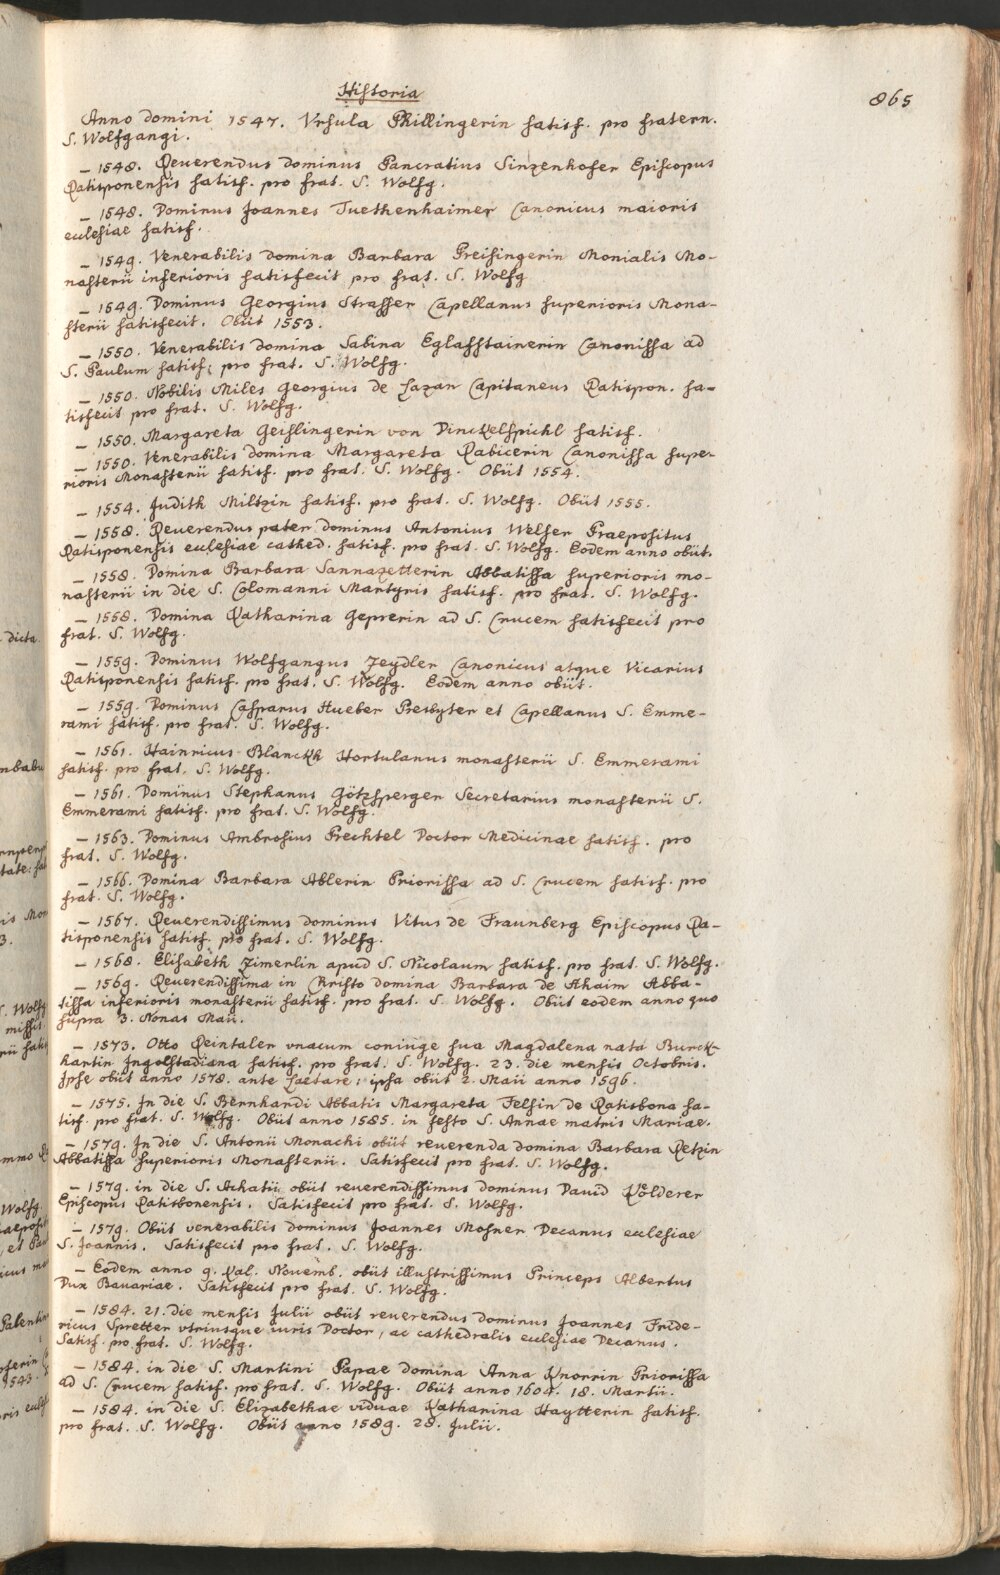 Historia
865
Anno domini 1547. Vrsula Phillingerin satisf. pro fratern.
S. Wolfgangi.
– 1548. Reuerendus dominus Pancratius Sinzenhofer Episcopus
Ratisponensis satisf. pro frat. S. Wolfg.
– 1548. Dominus Joannes Tuethenhaimer Canonicus maioris
ecclesiae satisf.
– 1549. Venerabilis domina Barbara Greisingerin Monialis Mo-
nasterii inferioris satisfecit pro frat. S. Wolfg
– 1549. Dominus Georgius Strasser Capellanus superioris Mona-
sterii satisfecit. Obiit 1553.
– 1550. Venerabilis domina Sabina Eglaffstainerin Canonissa ad
S. Paulum satisf: pro frat. S. Wolfg.
– 1550. Nobilis Miles Georgius de Lazan Capitaneus Ratispon. sa-
tisfecit pro frat. S. Wolfg.
– 1550. Margareta Geislingerin von Dinckelspickl satisf.
– 1550. Venerabilis domina Margareta Rabicerin Canonissa supe-
rioris Monasterii satisf. pro frat. S. Wolfg. Obiit 1554.
– 1554. Judith Miltzin satisf. pro frat. S. Wolfg. Obiit 1555.
– 1558. Reuerendus pater dominus Antonius Welser Praepositus
Ratisponensis ecclesiae cathed. satisf. pro frat. S. Wolfg. Eodem anno obiit.
– 1558. Domina Barbara Sannazetterin Abbatissa superioris mo-
nasterii in die S. Colomanni Martyris satisf. pro frat. S. Wolfg.
– 1558. Domina Katharina Geprerin ad S. Crucem satisfecit pro
frat. S. Wolfg.
– 1559. Dominus Wolfgangus Zeydler Canonicus atque Vicarius
Ratisponensis satisf. pro frat. S. Wolfg. Eodem anno obiit.
– 1559. Dominus Casparus Hueber Presbyter et Capellanus S. Emme-
rami satisf. pro frat. S. Wolfg.
– 1561. Hainricus Blanckh Hortulanus monasterii S. Emmerami
satisf. pro frat. S. Wolfg.
– 1561. Dominus Stephanus Götzsperger Secretarius monasterii S.
Emmerami satisf. pro frat. S. Wolfg.
– 1563. Dominus Ambrosius Prechtel Doctor Medicinae satisf. pro
frat. S. Wolfg.
– 1566. Domina Barbara Ablerin Priorissa ad S. Crucem satisf. pro
frat. S. Wolfg.
– 1567. Reuerendissimus dominus Vitus de Fraunberg Episcopus Ra-
tisponensis satisf. pro frat. S. Wolfg.
– 1568. Elisabeth Zimerlin apud S. Nicolaum satisf. pro frat. S. Wolfg.
– 1569. Reuerendissima in Christo domina Barbara de Ahaim Abba-
tissa inferioris monasterii satisf. pro frat. S. Wolfg. Obiit eodem anno quo
supra 3. Nonas Maii.
– 1573. Otto Reintaler vnacum coniuge sua Magdalena nata Burck-
hartin Ingolstadiana satisf. pro frat. S. Wolfg. 23. die mensis Octobris.
Ipse obiit anno 1578. ante Laetare: ipsa obiit 2. Maii anno 1596.
– 1575. In die S. Bernhardi Abbatis Margareta Felsin de Ratisbona sa-
tisf. pro frat. S. Wolfg. Obiit anno 1585. in festo S. Annae matris Mariae.
– 1579. In die S. Antonii Monachi obiit reuerenda domina Barbara Retzin
Abbatissa superioris Monasterii. Satisfecit pro frat. S. Wolfg.
– 1579. in die S. Achatii obiit reuerendissimus dominus Dauid Kölderer
Episcopus Ratisbonensis. Satisfecit pro frat. S. Wolfg.
– 1579. Obiit venerabilis dominus Joannes Mosner Decanus ecclesiae
S. Joannis. Satisfecit pro frat. S. Wolfg.
– Eodem anno 9. Kal. Nouemb. obiit illustrissimus Princeps Albertus
Dux Bauariae. Satisfecit pro frat. S. Wolfg.
– 1584. 21. die mensis Julii obiit reuerendus dominus Joannes Fride-
ricus Spretter vtriusque iuris Doctor, ac cathedralis ecclesiae Decanus.
Satisf. pro frat. S. Wolfg.
– 1584. in die S. Martini Papae domina Anna Knorrin Priorissa
ad S. Crucem satisf. pro frat. S. Wolfg. Obiit anno 1604. 18. Martii.
– 1584. in die S. Elizabethae viduae Katharina Haytterin satisf.
pro frat. S. Wolfg. Obiit anno 1589. 28. Julii.